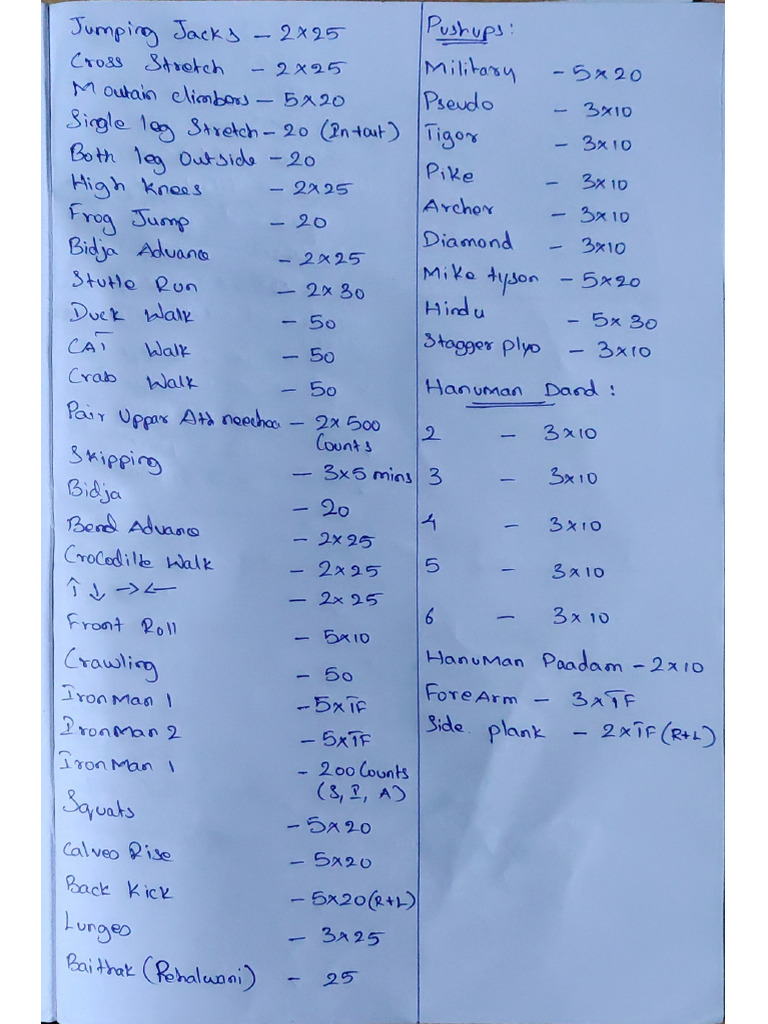 Jumping Jacks - 2x25
Cross Stretch - 2x25
Moutain climbers - 5x20
Single leg Stretch - 20 (In+out)
Both leg Outside - 20
High Knees - 2x25
Frog Jump - 20
Bidja Advance - 2x25
Stutle Run - 2x30
Duck Walk - 50
CAT Walk - 50
Crab Walk - 50
Pair Uppar And neechaa - 2x500
Counts
Skipping - 3x5 mins
Bidja - 20
Bend Advance - 2x25
Crocodile Walk - 2x25
↑ ↓ → ← - 2x25
Front Roll - 5x10
Crawling - 50
Iron Man 1 - 5xTF
Iron Man 2 - 5xTF
Iron Man 1 - 200 Counts
(S, I, A)
Squats - 5x20
Calves Rise - 5x20
Back Kick - 5x20 (R+L)
Lunges - 3x25
Baithak (Pehalwani) - 25
Pushups:
Military - 5x20
Pseudo - 3x10
Tiger - 3x10
Pike - 3x10
Archer - 3x10
Diamond - 3x10
Mike tyson - 5x20
Hindu - 5x30
Stagger plyo - 3x10
Hanuman Dand:
2 - 3x10
3 - 3x10
4 - 3x10
5 - 3x10
6 - 3x10
Hanuman Paadam - 2x10
ForeArm - 3xTF
Side plank - 2xTF (R+L)